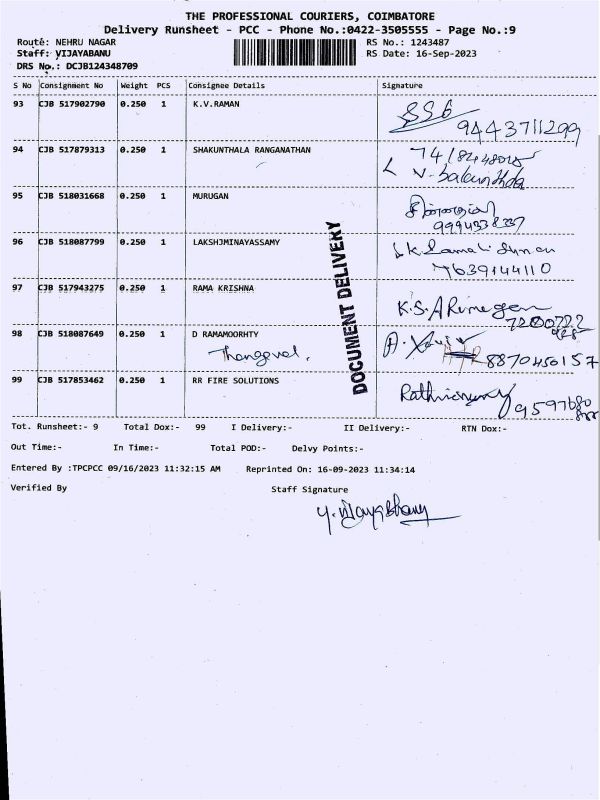 THE PROFESSIONAL COURIERS, COIMBATORE
Delivery Runsheet - PCC - Phone No.:0422-3505555 - Page No.:9
Route: NEHRU NAGAR RS No.: 1243487
Staff: VIJAYABANU RS Date: 16-Sep-2023
DRS No.: DCJB124348709
S No Consignment No Weight PCS Consignee Details Signature
93 CJB 517902790 0.250 1 K.V.RAMAN
9443711299
94 CJB 517879313 0.250 1 SHAKUNTHALA RANGANATHAN
95 CJB 518031668 0.250 1 MURUGAN
96 CJB 518087799 0.250 1 LAKSHJMINAYASSAMY
7639144110
97 CJB 517943275 0.250 1 RAMA KRISHNA
98 CJB 518087649 0.250 1 D RAMAMOORHTY
Thangavel.
8870450157
99 CJB 517853462 0.250 1 RR FIRE SOLUTIONS
DOCUMENT DELIVERY
Tot. Runsheet:- 9 Total Dox:- 99 I Delivery:- II Delivery:- RTN Dox:-
Out Time:- In Time:- Total POD:- Delvy Points:-
Entered By :TPCPCC 09/16/2023 11:32:15 AM Reprinted On: 16-09-2023 11:34:14
Verified By Staff Signature